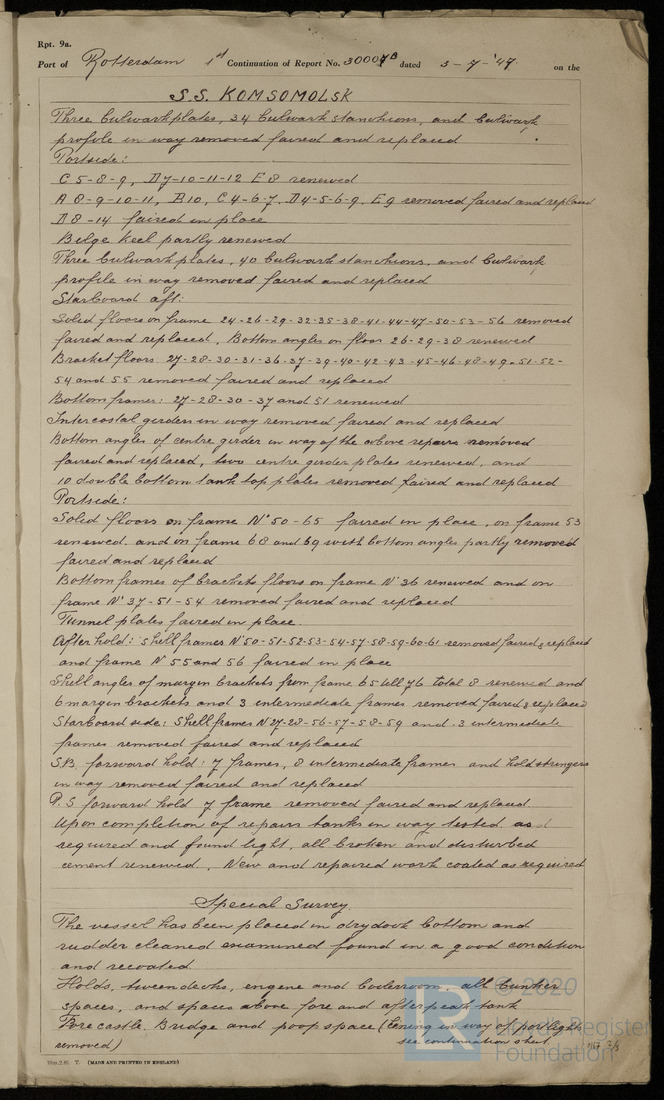 Rpt. 9a.
Port of Rotterdam 1st Continuation of Report No. 30007B dated 3-7-'47 on the
S.S. KOMSOMOLSK
Three bulwarkplates, 34 bulwark stanchions, and bulwark
profile in way removed faired and replaced
Portside:
C 5-8-9, D 7-10-11-12 E 8 renewed
A 8-9-10-11, B10, C 4-6-7, D 4-5-6-9, E 9 removed faired and replaced
D 8-14 faired in place
Bilge keel partly renewed
Three bulwark plates, 40 bulwark stanchions, and bulwark
profile in way removed faired and replaced
Starboard aft:
Solid floors on frame 24-26-29-32-35-38-41-44-47-50-53-56 removed
faired and replaced, Bottom angles on floor 26-29-38 renewed
Bracket floors 27-28-30-31-36-37-39-40-42-43-45-46-48-49-51-52-
54 and 55 removed faired and replaced
Bottom frames: 27-28-30-37 and 51 renewed
Intercostal girders in way removed faired and replaced
Bottom angles of centre girder in way of the above repairs removed
faired and replaced, two centre girder plates renewed, and
10 double bottom tank top plates removed faired and replaced
Portside:
Solid floors on frame No 50-65 faired in place, on frame 53
renewed and on frame 68 and 69 with bottom angles partly removed
faired and replaced
Bottom frames of brackets floors on frame No 36 renewed and on
frame No 37-51-54 removed faired and replaced
Tunnel plates faired in place.
After hold: Shell frames No 50-51-52-53-54-57-58-59-60-61 removed faired & replaced
and frame No 55 and 56 faired in place
Shell angles of margin brackets from frame 65 till 76 total 8 renewed and
6 margin brackets and 3 intermediate frames removed faired & replaced
Starboard side: Shell frames No 27-28-56-57-58-59 and 3 intermediate
frames removed faired and replaced
S.B. forward hold: 7 frames, 8 intermediate frames and hold stringers
in way removed faired and replaced
P.S forward hold 7 frame removed faired and replaced
Upon completion of repairs tanks in way tested as
required and found tight, all broken and disturbed
cement renewed. New and repaired work coated as required
Special Survey.
The vessel has been placed in drydock bottom and
rudder cleaned examined found in a good condition
and recoated
Holds, tweendecks, engine and boilerroom, all bunker
spaces, and spaces above fore and afterpeak tank
Forecastle, Bridge and poop space (lining in way of portlights
removed) see continuation sheet.
(MADE AND PRINTED IN ENGLAND)
© 2020
Lloyd's Register
Foundation